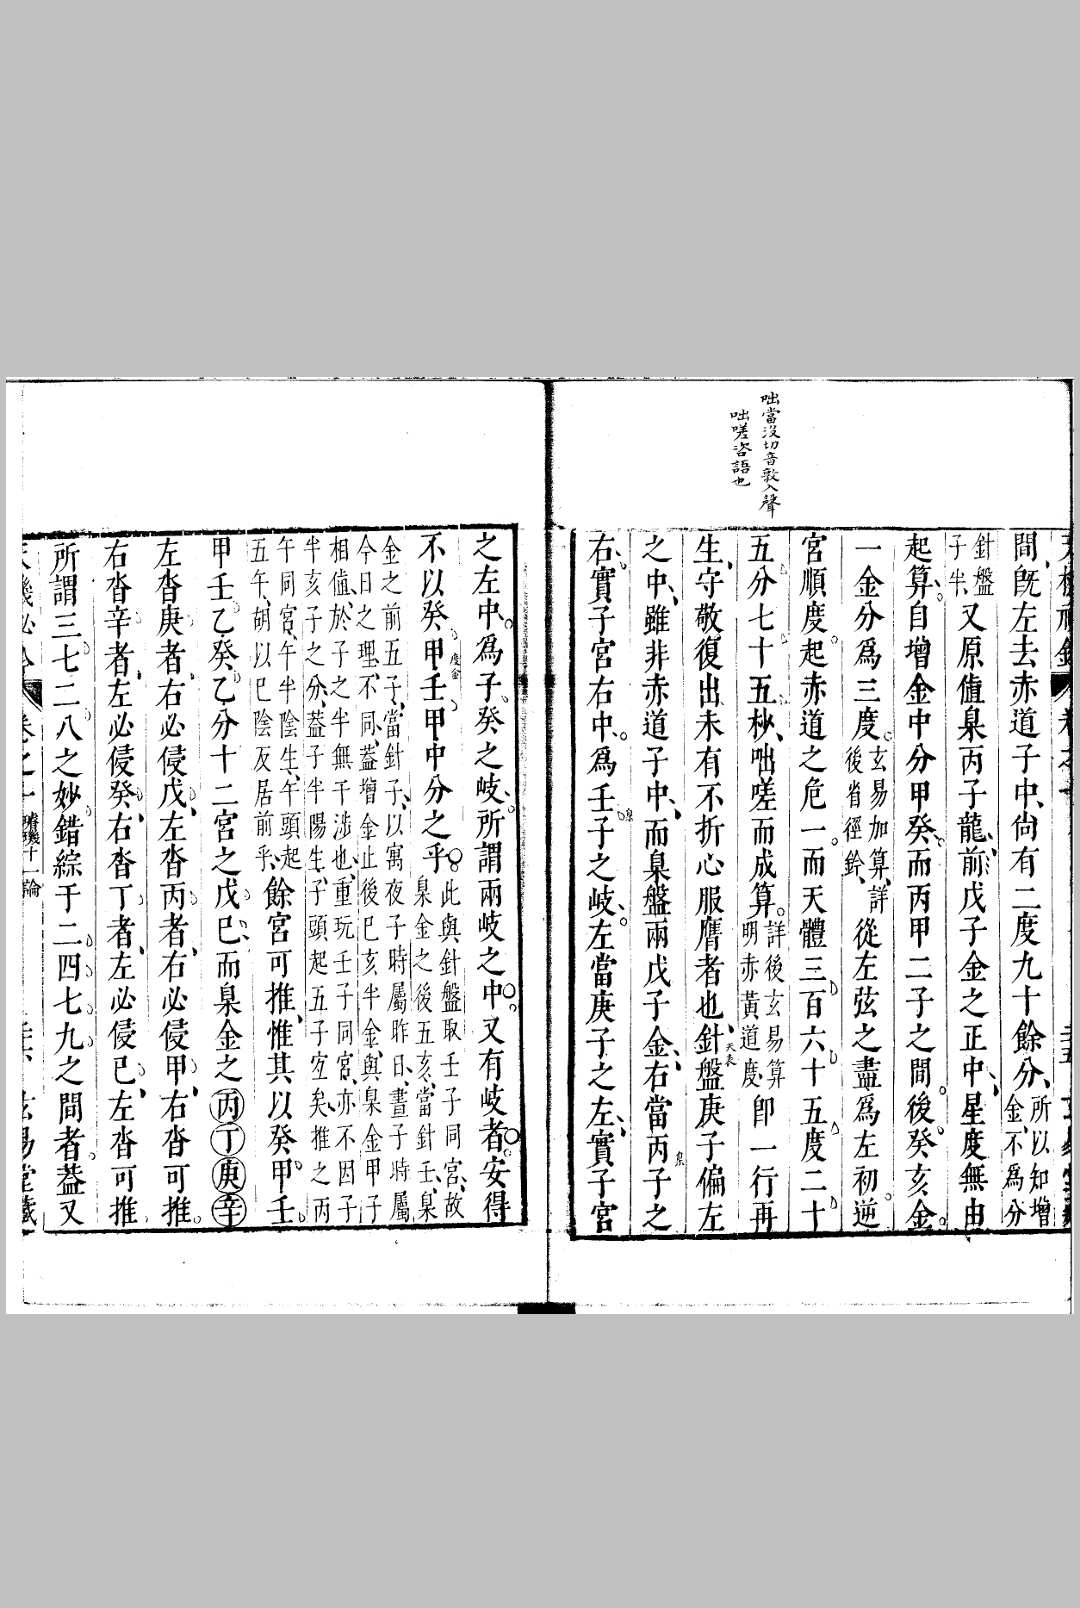 咄當沒切音敦入聲
咄嗟咨語也
間、旣左去赤道子中、尙有二度九十餘分、所以知增金、不爲分
針盤子半、又原值臬丙子龍、前戊子金之正中、星度無由
起算、自增金中分甲癸、而丙甲二子之間。後癸亥金。
一金分爲三度。玄易加算、詳後省徑鈐、從左弦之盡爲左初。逆
宮順度。起赤道之危一。而天體三百六十五度二十
五分七十五杪、咄嗟而成算。詳後玄易算明赤黃道度卽一行再
生、守敬復出、未有不折心服膺者也、天表針盤庚子偏左
之中、雖非赤道子中、而臬盤兩戊子金、右當臬丙子之
右、實子宮右中。爲臬壬子之岐、左當庚子之左、實子宮
之左中。爲子。癸之岐、所謂兩岐之中。又有岐者。安得
不以癸、甲度金壬、甲中分之乎。此與針盤取壬子同宮、故臬金之後五亥、當針壬、臬
金之前五子、當針子、以寓夜子時屬昨日、晝子時屬
今日之理、不同、葢增金止後巳亥半金、與臬金甲子
相值、於子之半無干涉也、重玩壬子同宮、亦不因子
半亥子之分、葢子半陽生、子頭起五子宐矣、推之丙
午同宮、午半陰生、午頭起
五午、胡以巳陰反居前乎、餘宮可推、惟其以癸甲、壬、
甲壬、乙癸、乙分十二宮之戊、巳、而臬金之丙丁庚辛
左沓庚者、右必侵戊、左沓丙者、右必侵甲、右沓可推。
右沓辛者、左必侵癸、右沓丁者、左必侵已、左沓可推
所謂三七二八之妙、錯綜于二四七九之間者。葢又
卷之十